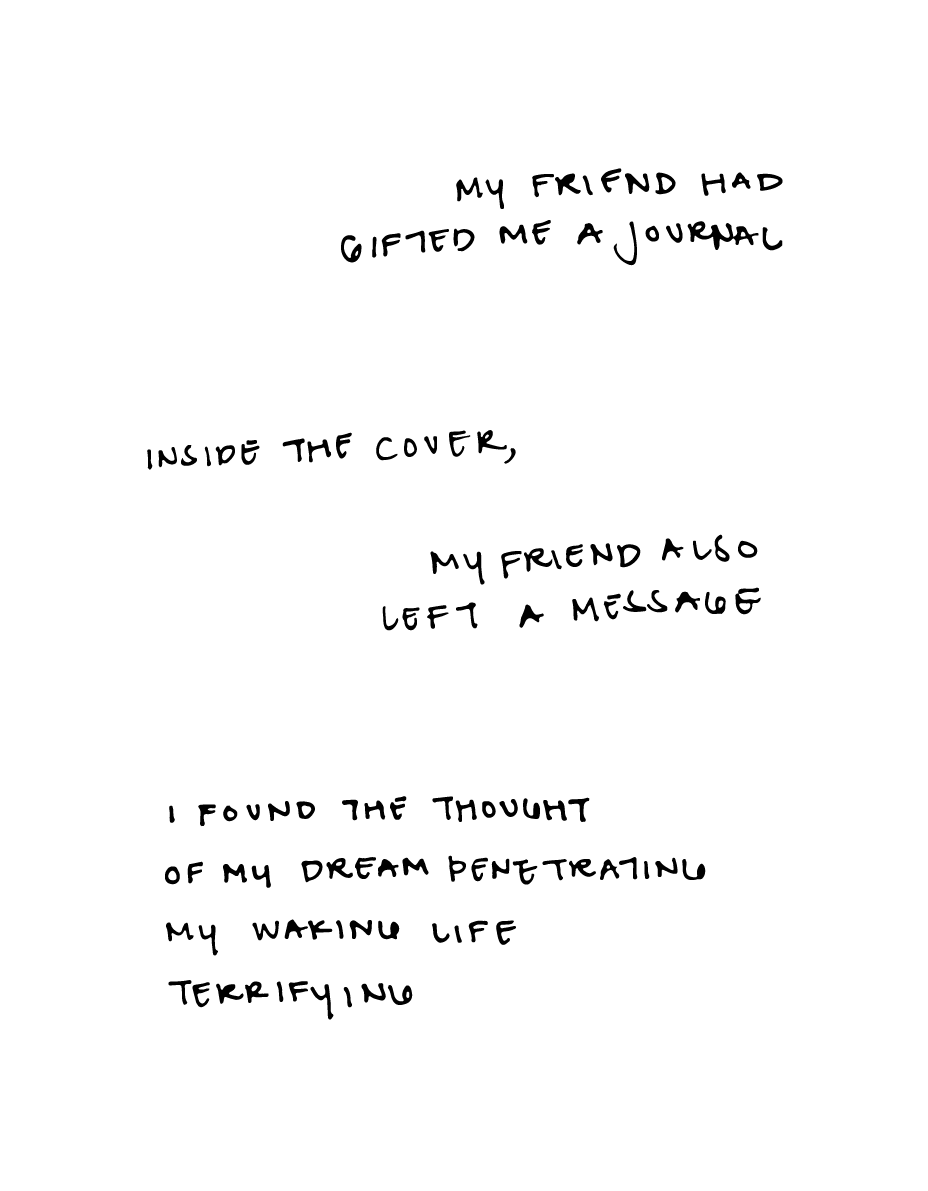 MY FRIEND HAD
GIFTED ME A JOURNAL
INSIDE THE COVER,
MY FRIEND ALSO
LEFT A MESSAGE
I FOUND THE THOUGHT
OF MY DREAM PENETRATING
MY WAKING LIFE
TERRIFYING